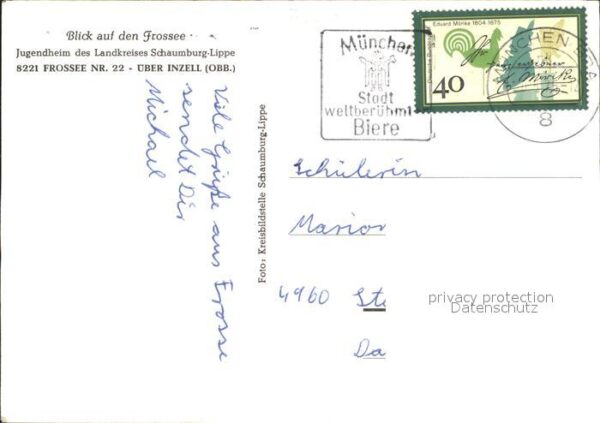 Blick auf den Frossee
Jugendheim des Landkreises Schaumburg-Lippe
8221 FROSSEE NR. 22 - ÜBER INZELL (OBB.)
Viele Grüße aus Frosse
sendet Dir
Michael
Foto: Kreisbildstelle Schaumburg-Lippe
München
Stadt
weltberühmt
Biere
Eduard Mörike 1804-1875
Deutsche Bundespost
40
E. Mörike
MÜNCHEN
8
Schülerin
Marion
4960 Sta
Da
privacy protection
Datenschutz